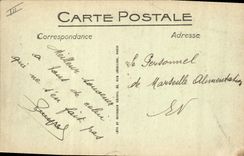 CARTE POSTALE
Correspondance
Adresse
Meilleur souvenir
à tout de celui
qui ne s'en fait pas
Le Personnel
de Marseille Alimentation
EV